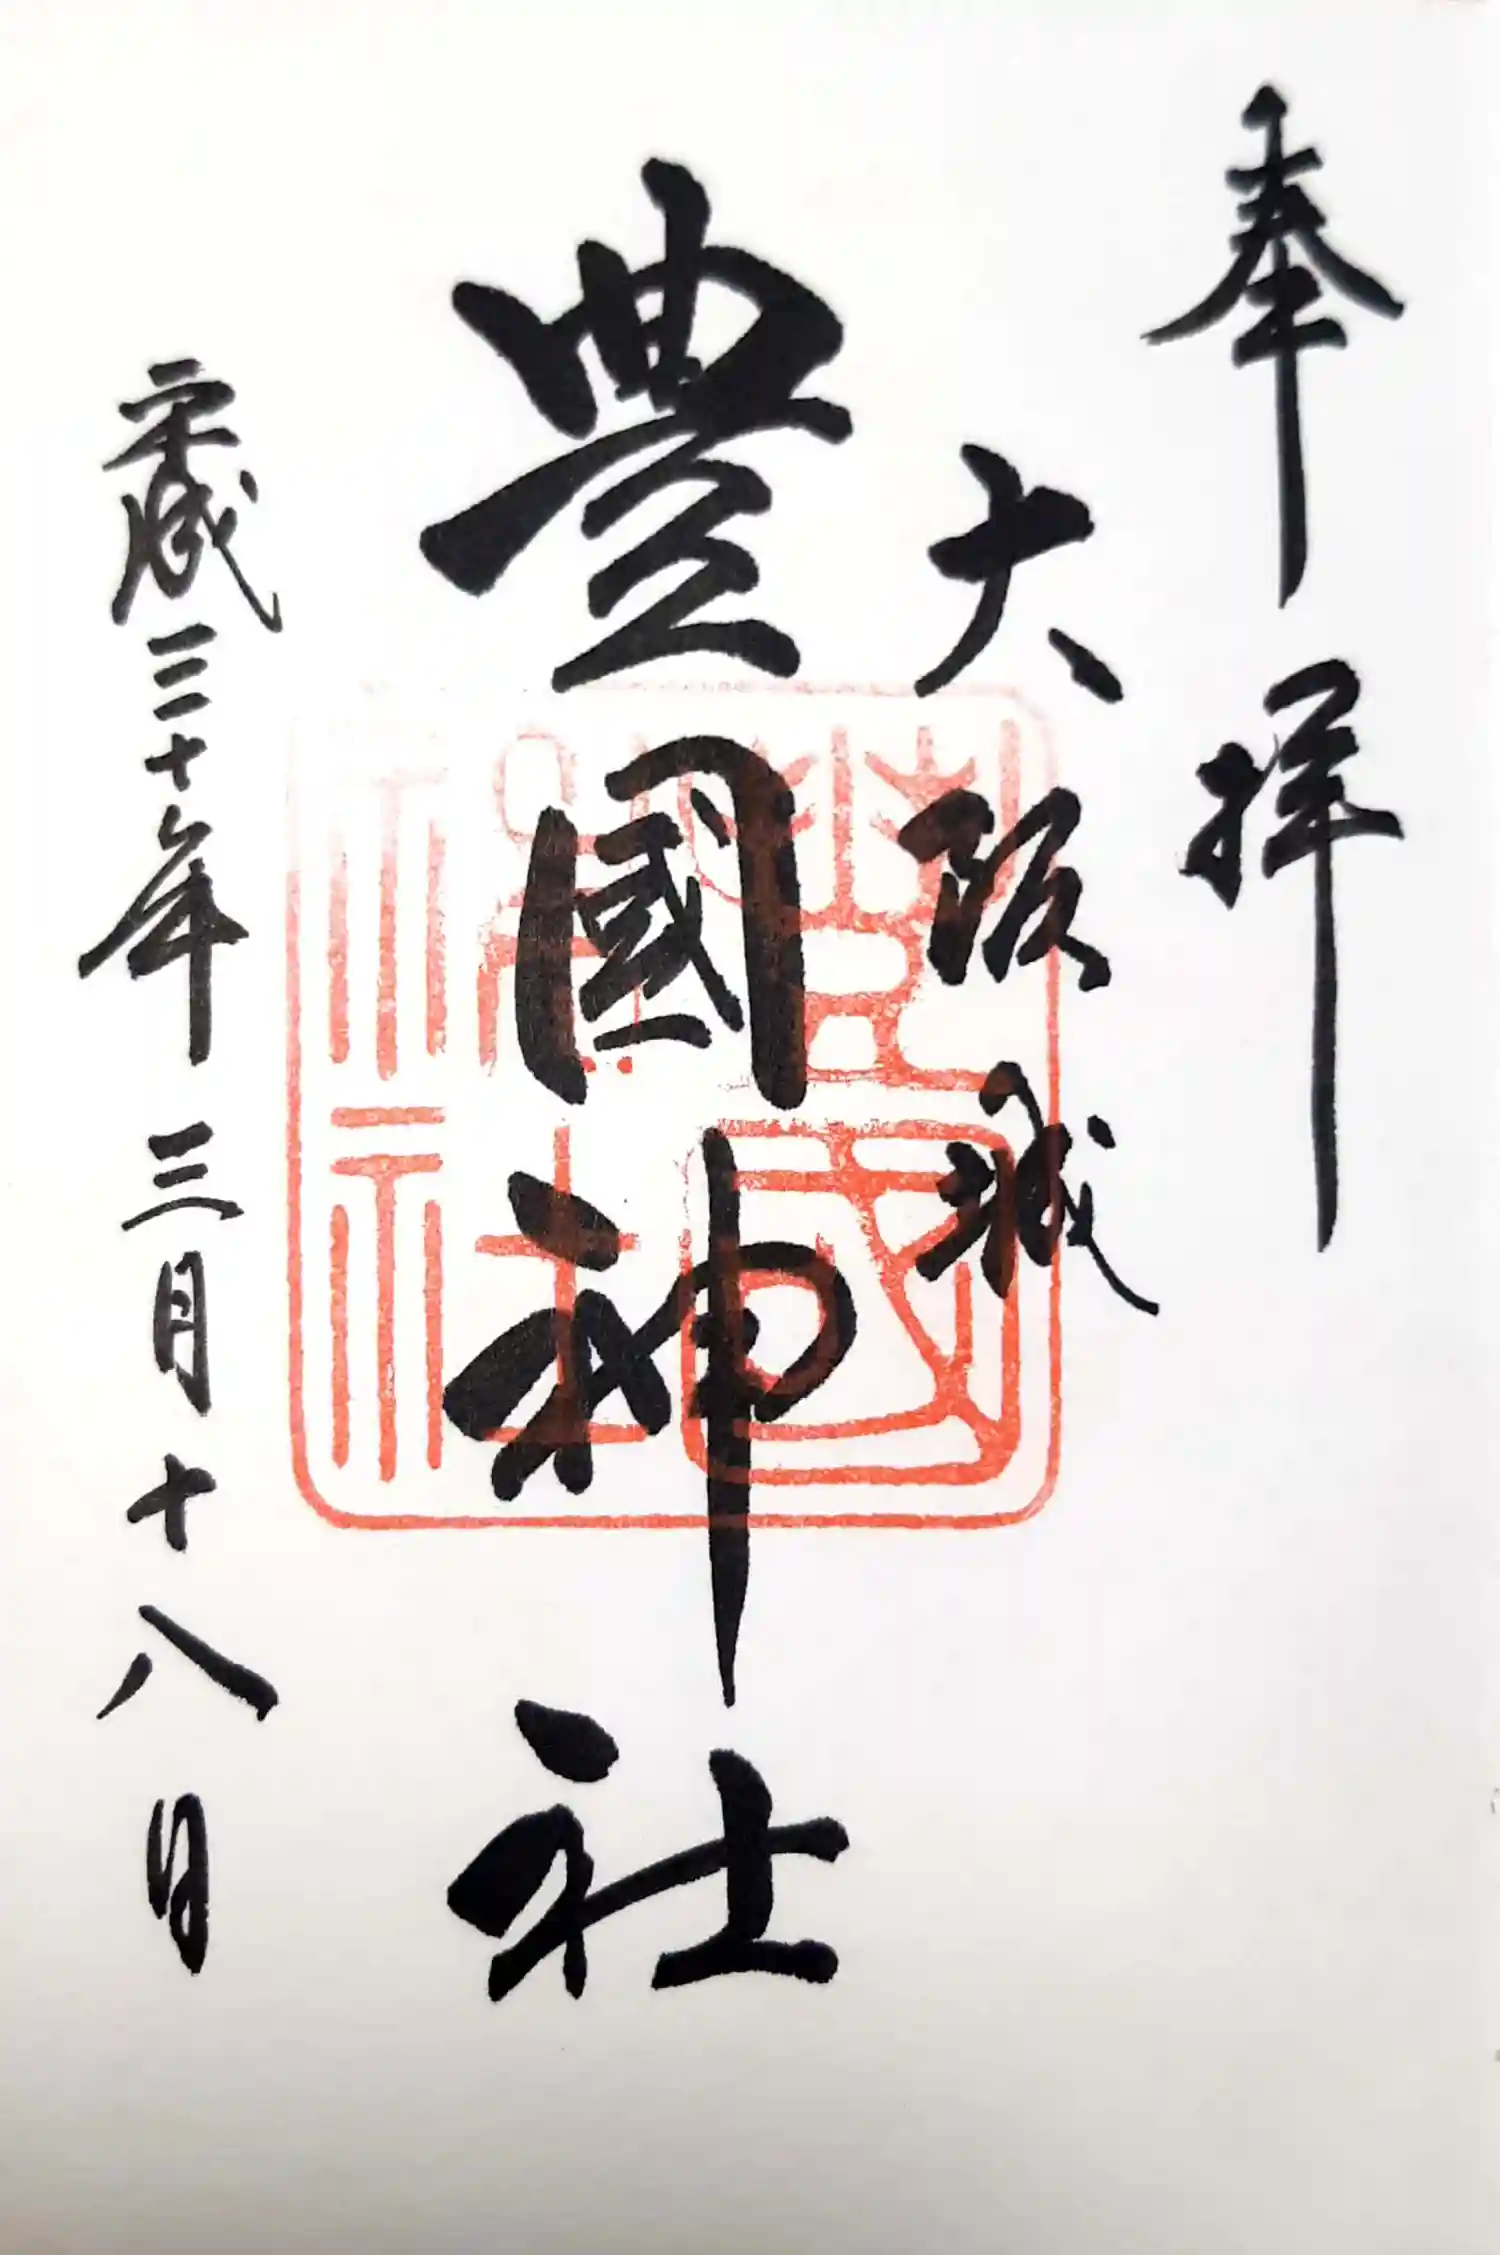 奉拝
大阪城
豊國神社
平成三十年三月十八日
豊國神社